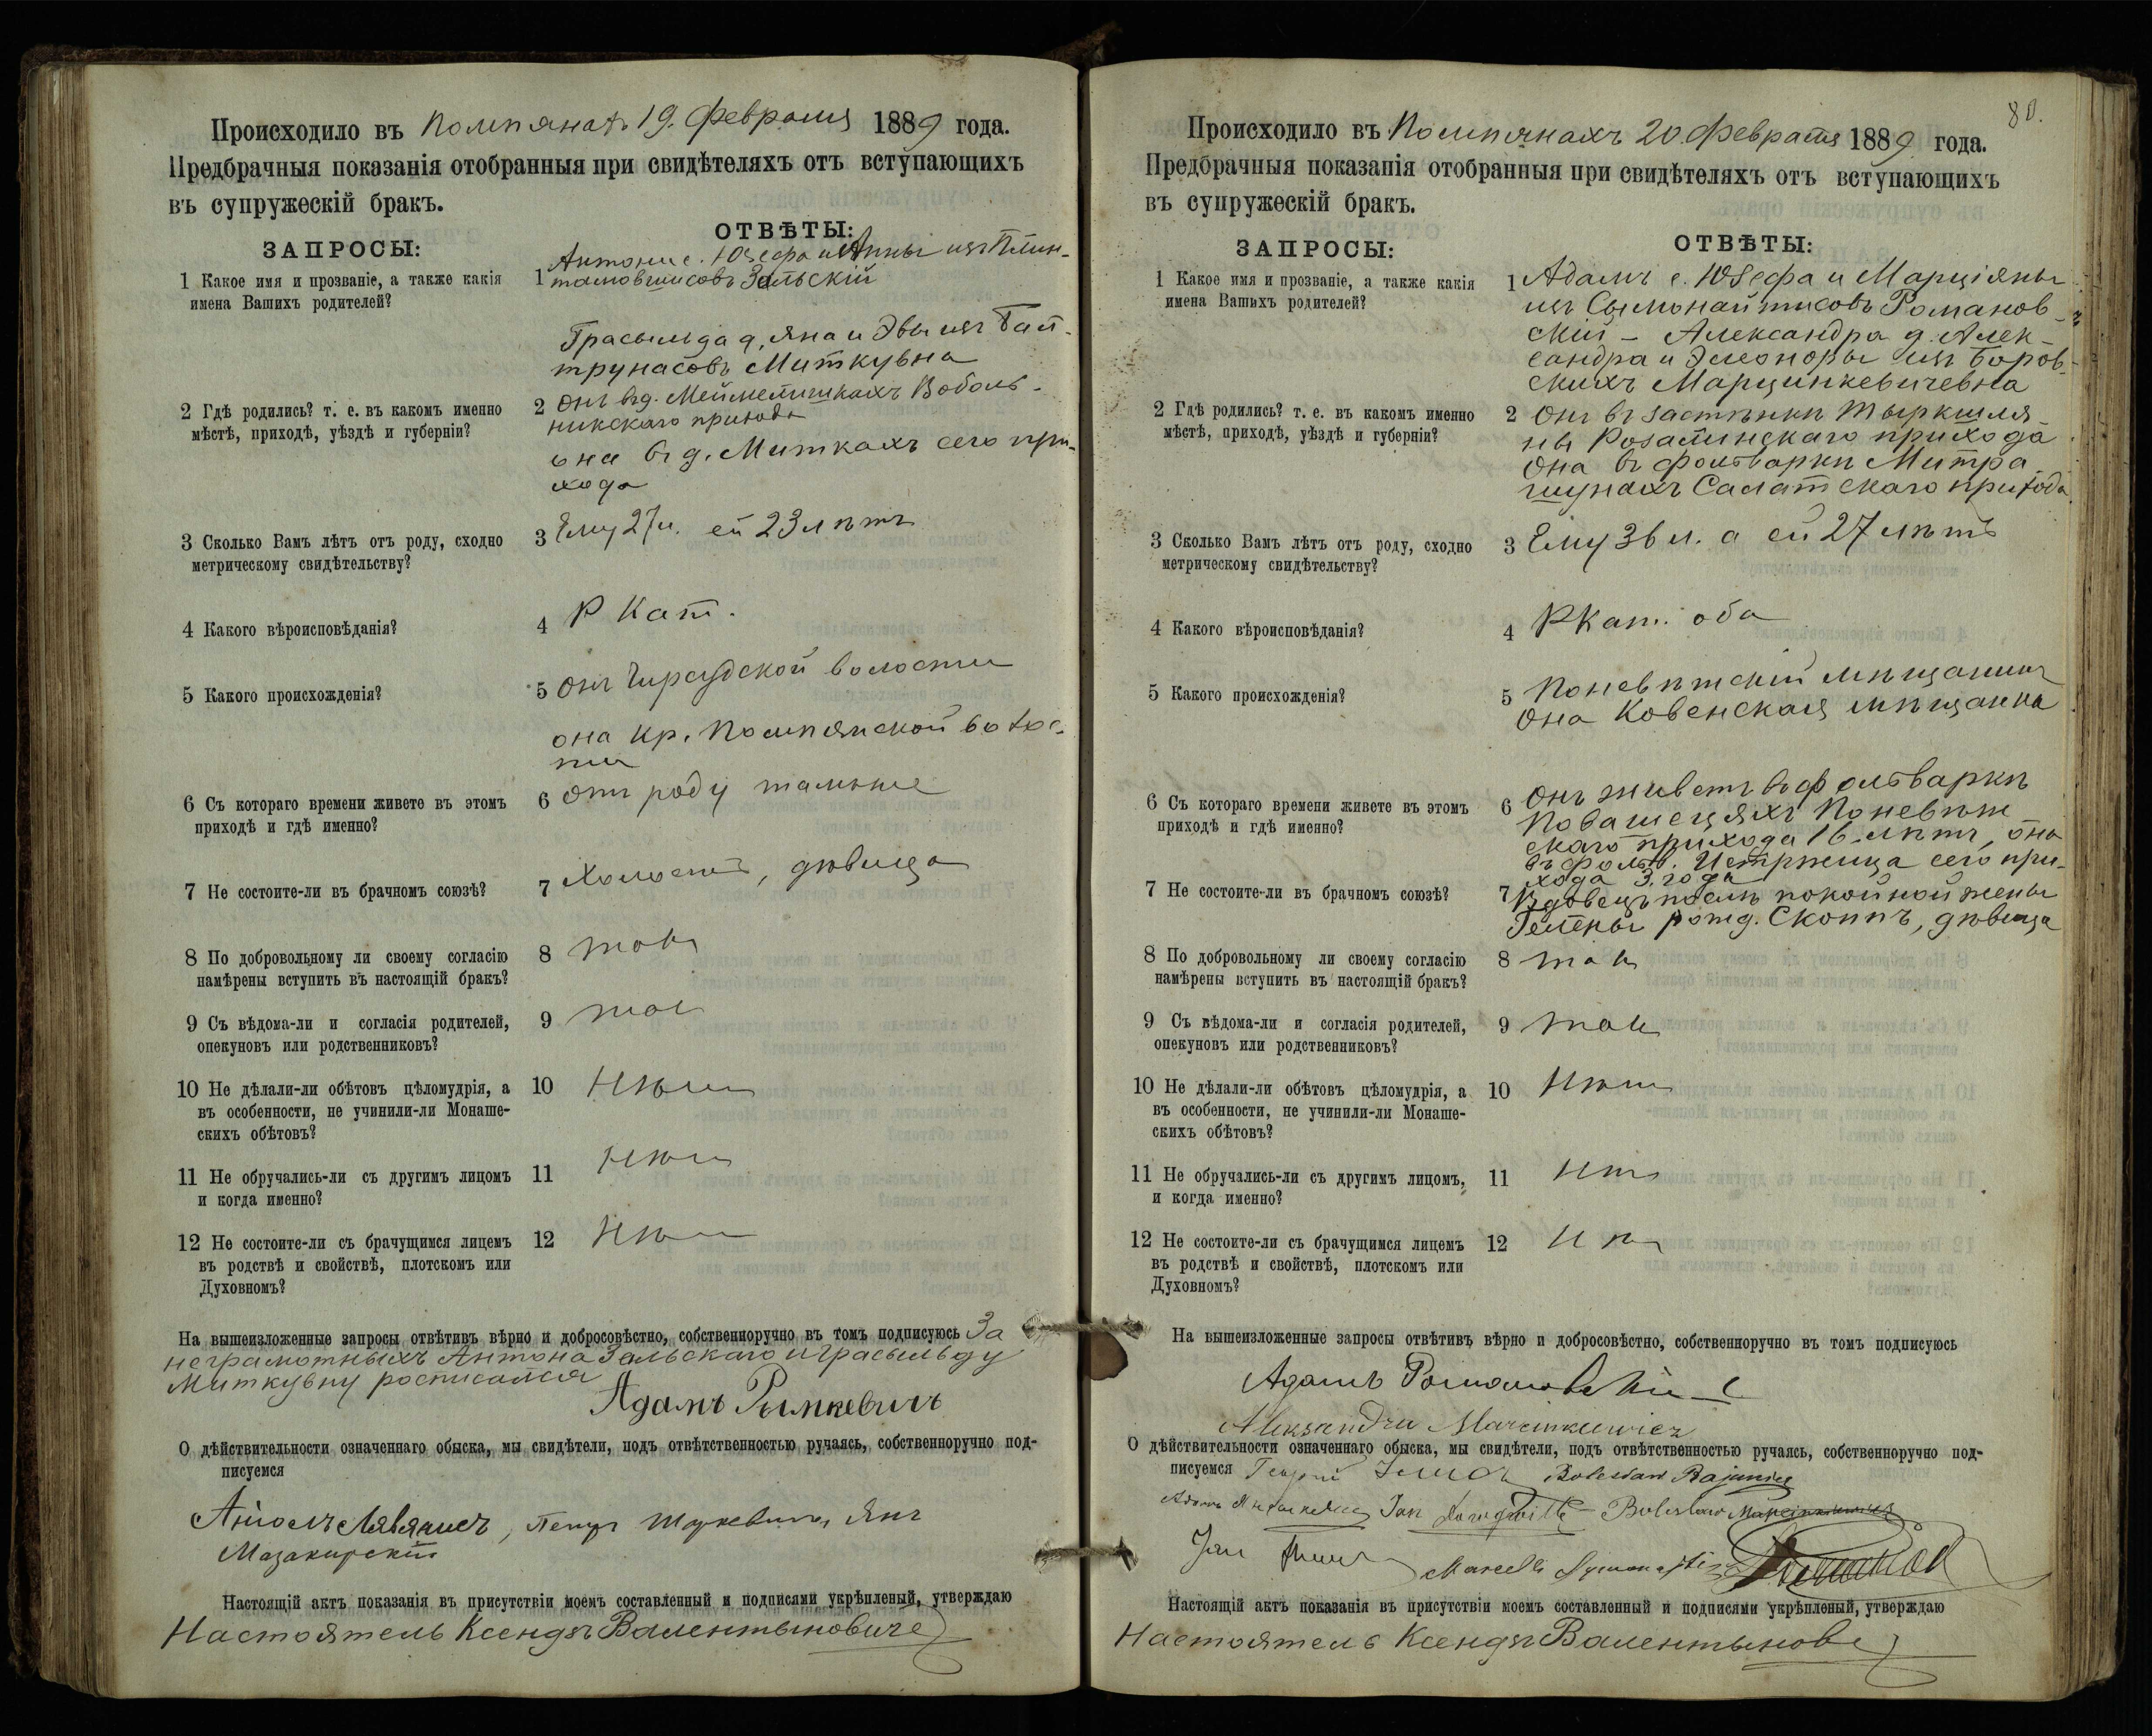 Происходило въ Помпянахъ 19. Февраля 1889 года.
Предбрачныя показанія отобранныя при свидѣтеляхъ отъ вступающихъ
въ супружескій бракъ.
ЗАПРОСЫ:
ОТВѢТЫ:
1 Какое имя и прозваніе, а также какія
имена Вашихъ родителей?
1 Антони с. Юзефа и Анны изъ
Зельскій
Грасыльда д. Яна и Эвы изъ Бал-
трунасовъ Миткувна
2 Гдѣ родились? т. е. въ какомъ именно
мѣстѣ, приходѣ, уѣздѣ и губерніи?
2 Онъ въ д. Воболь-
никскаго прихода
она въ д. Миткахъ сего при-
хода
3 Сколько Вамъ лѣтъ отъ роду, сходно
метрическому свидѣтельству?
3 Ему 27 л. ей 23 лѣтъ
4 Какого вѣроисповѣданія?
4 Р Кат.
5 Какого происхожденія?
5 Онъ волости
она кр. Помпянской волос-
ти
6 Съ котораго времени живете въ этомъ
приходѣ и гдѣ именно?
6 Отъ роду тамъже
7 Не состоите-ли въ брачномъ союзѣ?
7 Холостъ, дѣвица
8 По добровольному ли своему согласію
намѣрены вступить въ настоящій бракъ?
8 такъ
9 Съ вѣдома-ли и согласія родителей,
опекуновъ или родственниковъ?
9 такъ
10 Не дѣлали-ли обѣтовъ цѣломудрія, а
въ особенности, не учинили-ли Монаше-
скихъ обѣтовъ?
10 Нѣтъ
11 Не обручались-ли съ другимъ лицомъ
и когда именно?
11 Нѣтъ
12 Не состоите-ли съ брачущимся лицемъ
въ родствѣ и свойствѣ, плотскомъ или
Духовномъ?
12 Нѣтъ
На вышеизложенные запросы отвѣтивъ вѣрно и добросовѣстно, собственноручно въ томъ подписуюсь За
неграмотныхъ Антона Зельскаго и Грасыльду
Миткувну росписался
Адамъ Рымкевичъ
О дѣйствительности означеннаго обыска, мы свидѣтели, подъ отвѣтственностью ручаясь, собственноручно под-
писуемся
Петръ Янъ
Настоящій актъ показанія въ присутствіи моемъ составленный и подписями укрѣпленый, утверждаю
Настоятель Ксендзъ Валентыновиче
80.
Происходило въ Помпянахъ 20 Февраля 1889 года.
Предбрачныя показанія отобранныя при свидѣтеляхъ отъ вступающихъ
въ супружескій бракъ.
ЗАПРОСЫ:
ОТВѢТЫ:
1 Какое имя и прозваніе, а также какія
имена Вашихъ родителей?
1 Адамъ с. Юзефа и Марціяны
изъ Сымонайтисовъ Романов-
скій – Александра д. Алек-
сандра и Элеоноры изъ Боров-
скихъ Марцинкевичевна
2 Гдѣ родились? т. е. въ какомъ именно
мѣстѣ, приходѣ, уѣздѣ и губерніи?
2 Онъ въ застѣнкѣ Тыркшля-
ны Розалинскаго прихода
Она въ фольваркѣ Митра-
шунахъ Салатскаго прихода
3 Сколько Вамъ лѣтъ отъ роду, сходно
метрическому свидѣтельству?
3 Ему 36 л. а ей 27 лѣтъ
4 Какого вѣроисповѣданія?
4 РКат. оба
5 Какого происхожденія?
5 Поневѣжскій мѣщанинъ
Она Ковенская мѣщанка
6 Съ котораго времени живете въ этомъ
приходѣ и гдѣ именно?
6 Онъ живетъ въ фольваркѣ
Поневѣж
скаго прихода 16. лѣтъ, она
въ фольв. сего при-
хода 3. года
7 Не состоите-ли въ брачномъ союзѣ?
7 Вдовецъ послѣ покойной жены
Гелены рожд. Скоппъ, дѣвица
8 По добровольному ли своему согласію
намѣрены вступить въ настоящій бракъ?
8 такъ
9 Съ вѣдома-ли и согласія родителей,
опекуновъ или родственниковъ?
9 такъ
10 Не дѣлали-ли обѣтовъ цѣломудрія, а
въ особенности, не учинили-ли Монаше-
скихъ обѣтовъ?
10 Нѣтъ
11 Не обручались-ли съ другимъ лицомъ,
и когда именно?
11 Нѣтъ
12 Не состоите-ли съ брачущимся лицемъ
въ родствѣ и свойствѣ, плотскомъ или
Духовномъ?
12 Нѣтъ
На вышеизложенные запросы отвѣтивъ вѣрно и добросовѣстно, собственноручно въ томъ подписуюсь
Адамъ Романовскій
Aleksandra Marcinkiewicz
О дѣйствительности означеннаго обыска, мы свидѣтели, подъ отвѣтственностью ручаясь, собственноручно под-
писуемся Bolesław
Jan Bolesław Marcinkiewicz
Jan Marcelli
Настоящій актъ показанія въ присутствіи моемъ составленный и подписями укрѣпленый, утверждаю
Настоятель Ксендзъ Валентынове